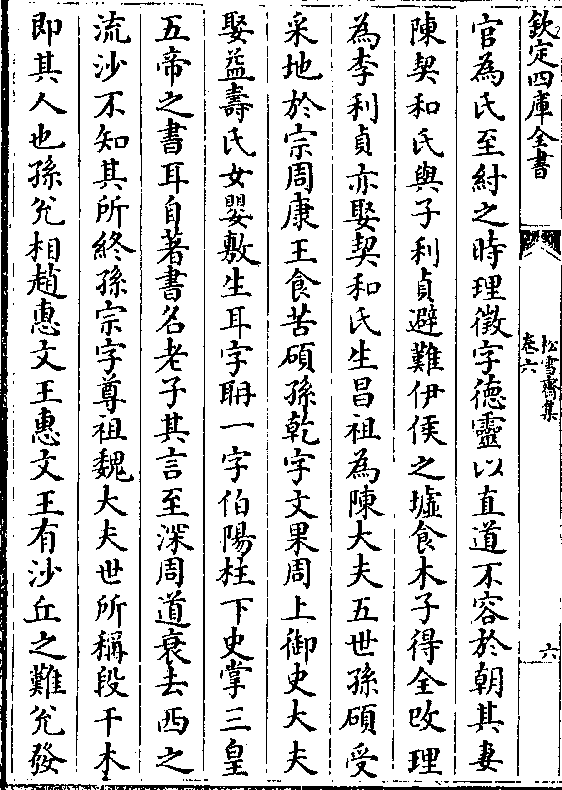 欽定四庫全書
松雪齋集
卷六
六
官為氏至紂之時理徵字德靈以直道不容於朝其妻
陳契和氏與子利貞避難伊侯之墟食木子得全改理
為李利貞亦娶契和氏生昌祖為陳大夫五世孫碩受
采地於宗周康王食苦碩孫乾字文果周上御史大夫
娶益壽氏女嬰敷生耳字耼一字伯陽柱下史掌三皇
五帝之書耳自著書名老子其言至深周道衰去西之
流沙不知其所終孫宗字尊祖魏大夫世所稱段干木
即其人也孫兊相趙惠文王惠文王有沙丘之難兊發